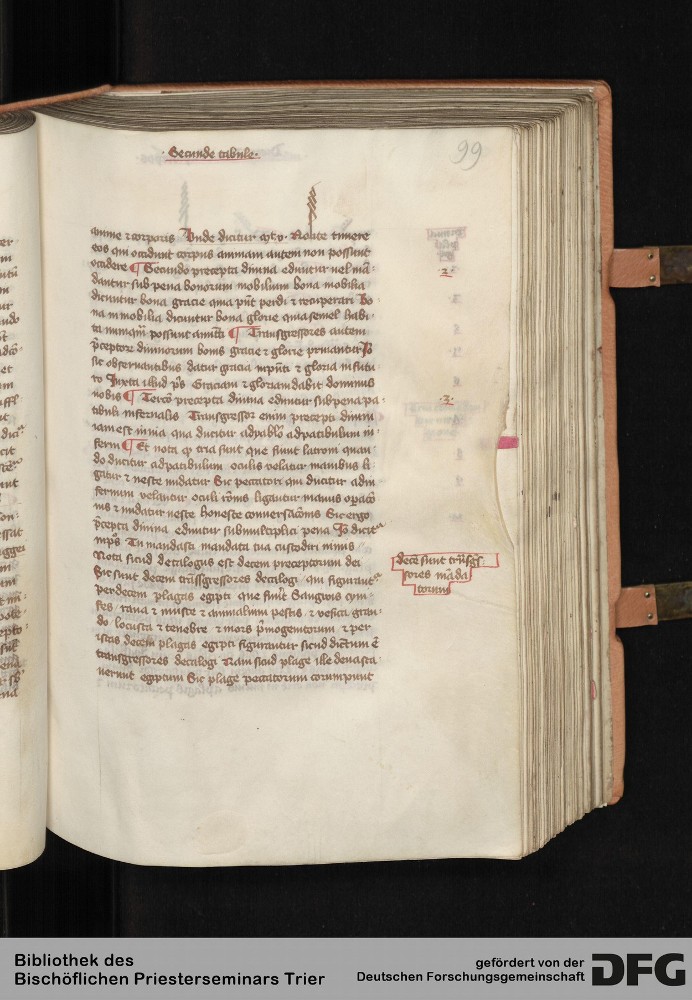 Secunde tabule
99
anime & corporis Unde dicitur Nolite timere
eos qui occidunt corpus animam autem non possunt
occidere ¶ Secundo precepta diuina eduntur uel mā
dantur sub pena bonorum mobilium bona mobilia
dicuntur bona gracie quia pn̄t perdi & recuperari bo
na inmobilia dicuntur bona glorie quia semel habi
ta numquam possunt amitti ¶ Transgressores autem
p̄ceptorꝝ diuinorum bonis gracie & glorie priuantur Io
sic obseruantibus datur gracia in & gloria in futu
ro Iuxta illud ps̄ Graciam & gloriam dabit dominus
nobis ¶ Tercō precepta diuina eduntur sub pena pa
tibuli infernalis Transgressor enim precepti diuini
iam est qua ducitur ad patibulum in
ferni ¶ Et nota qꝫ tria sunt que fiunt latroni quan
do ducitur ad patibulum oculis velatur manibus li
gatur & ueste nudatur Sic peccatori qui ducitur ad in
fernum velantur oculi ligantur manus
nis & nudatur ueste honeste conuersacōnis Sic ergo
p̄cepta diuina eduntur sub multiplici pena Io dicitʳ
in ps̄ Tu mandasti mandata tua custodiri nimis
Nota sicud decalogus est decem preceptorum dei
Sic sunt decem trāssgressores decalogi qui figurantʳ
per decem plagas egipti que sunt Sangwis
rana & musce & animalium pestis & vesica gran
do locusta & tenebre & mors p̄mogenitorum & per
istas decem plagas egipti figurantur sicud dictum ē
transgressores decalogi Nam sicud plage ille deuasta
uerunt egiptum Sic plage peccatorum corumpunt
2
3
dece sunt trāsgs
sores māda
torum
Bibliothek des
Bischöflichen Priesterseminars Trier
gefördert von der
Deutschen Forschungsgemeinschaft
DFG